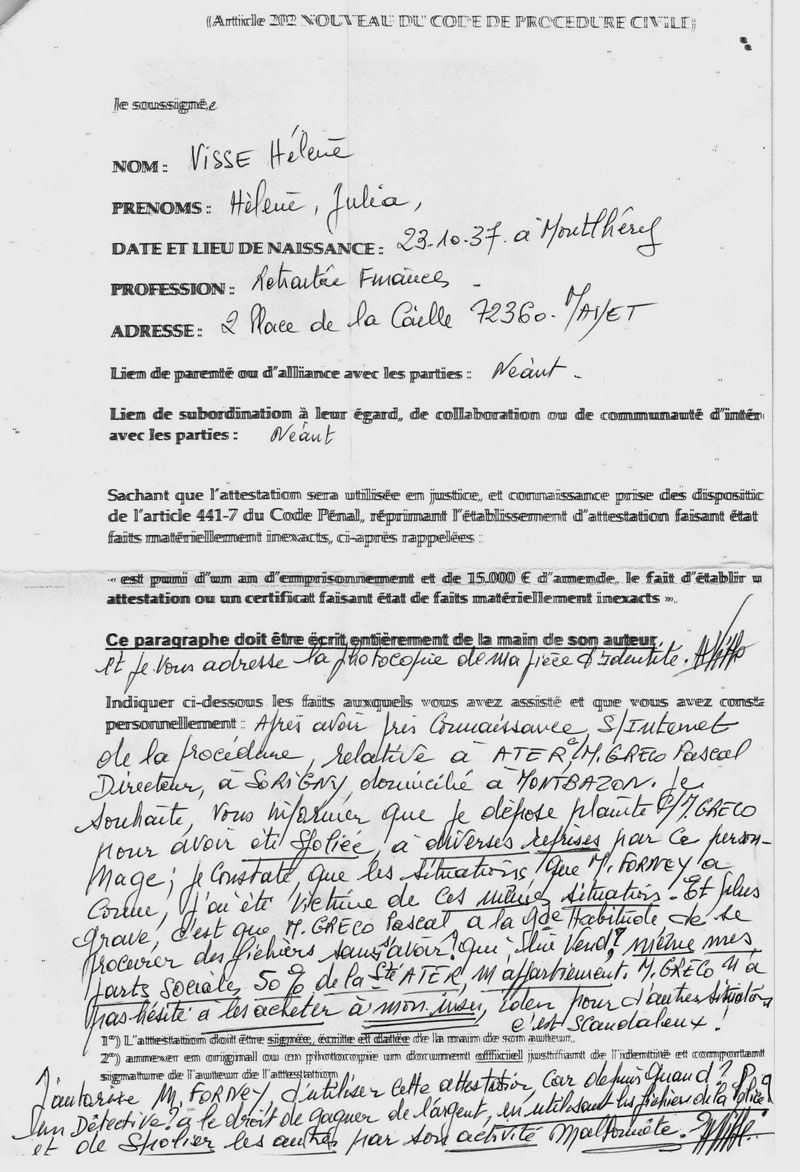 (Article 202 NOUVEAU DU CODE DE PROCEDURE CIVILE)
Je soussigné,e
NOM : VISSE Hélène
PRENOMS : Hélène, Julia,
DATE ET LIEU DE NAISSANCE : 23.10.37. à Montlhéry
PROFESSION : Retraitée Finances -
ADRESSE : 2 Place de la 72360. MAYET
Lien de parenté ou d'alliance avec les parties : Néant -
Lien de subordination à leur égard, de collaboration ou de communauté d'intér
avec les parties : Néant
Sachant que l'attestation sera utilisée en justice, et connaissance prise des dispositic
de l'article 441-7 du Code Pénal, réprimant l'établissement d'attestation faisant état
faits matériellement inexacts, ci-après rappelées :
« est puni d'un an d'emprisonnement et de 15.000 € d'amende, le fait d'établir u
attestation ou un certificat faisant état de faits matériellement inexacts ».
Ce paragraphe doit être écrit entièrement de la main de son auteur.
et je vous adresse la photocopie de ma pièce d'Identité.
Indiquer ci-dessous les faits auxquels vous avez assisté et que vous avez consta
personnellement : Après avoir pris Connaissance, S/Internet
de la procédure, relative à ATER C/M. GRECO Pascal
Directeur, à SORIGNY, domicilié à MONTBAZON. Je
souhaite, vous informer que je dépose plainte C/M. GRECO
pour avoir été Spoliée, à diverses reprises par ce person-
nage ; je constate que les situations que M. FORNEY a
connu, j'ai été victime de ces même situation. Et plus
grave, c'est que M. GRECO Pascal a la gde Habitude de se
procurer des fichiers sans s'avoir ? qui lui Vend ? même mes
parts Sociales 50% de la Sté ATER, m'appartiennent. M. GRECO n'a
pas hésité à les acheter à mon insu, idem pour d'autres situations
c'est Scandaleux !
1°) L'attestation doit être signée, écrite et datée de la main de son auteur.
2°) annexer en original ou en photocopie un document officiel justifiant de l'identité et comportant
signature de l'auteur de l'attestation
J'autorise M. FORNEY, d'utiliser cette attestation, car depuis Quand ?
Un Détective ? a le droit de gagner de l'argent, en utilisant les fichiers de la Police !
et de Spolier les autres par son activité Malhonnête.